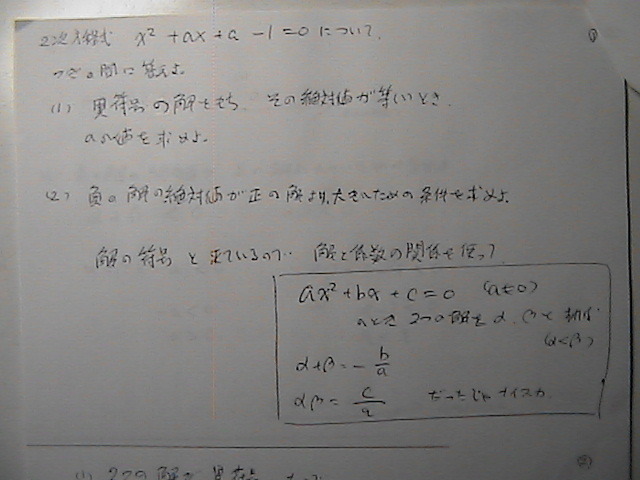 2次方程式 x² + ax + a - 1 = 0 について、
①
つぎの問に答えよ
(1) 異符号の解をもち その絶対値が等しいとき、
aの値を求めよ。
(2) 負の解の絶対値が正の解より、大きいための条件を求めよ
解の符号 と来ているので… 解と係数の関係を使って
ax² + bx + c = 0 (a≠0)
のとき 2つの解を α、βと
(α<β)
α+β = - b/a
αβ = c/a だったじゃ ナイスカ
②
(1) 2つの解が 異符号